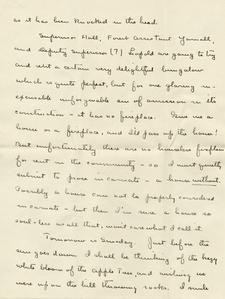 as it has been knocked in the head.
Supervisor Hall, Forest Assistant Yarnall,
and Deputy Supervisor (?) Leopold are going to try
and rent a certain very delightful bungalow
which is quite perfect, but for one glaring in-
excusable unforgivable sin of omission in its
construction - it has no fireplace. Give me a
house or a fireplace, and I'll pass up the house!
But unfortunately there are no homeless fireplaces
for rent in the community - so I must quietly
submit to prose in carnate - a house without.
Possibly a house can not be properly considered
in carnate - but then I'm sure a house so
soul-less as all that, won't care what I call it.
Tomorrow is Sunday. Just before the
sun goes down I shall be thinking of the hazy
white bloom of the Apple Tree, and wishing we
were up on the hill throwing rocks. I smile